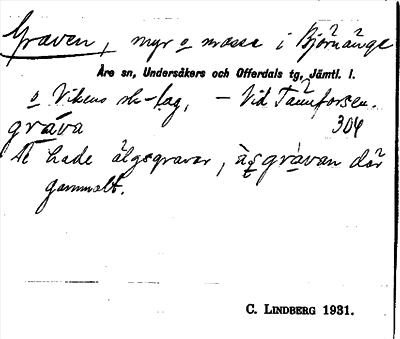 Graven, myr o mosse i Björnänge
Åre sn, Undersåkers och Offerdals tg, Jämtl. l.
o Vikens sk-lag, – Vid Tännforsen.
grava 304
De hade älgsgravar, gravan där
gammalt.
C. LINDBERG 1931.